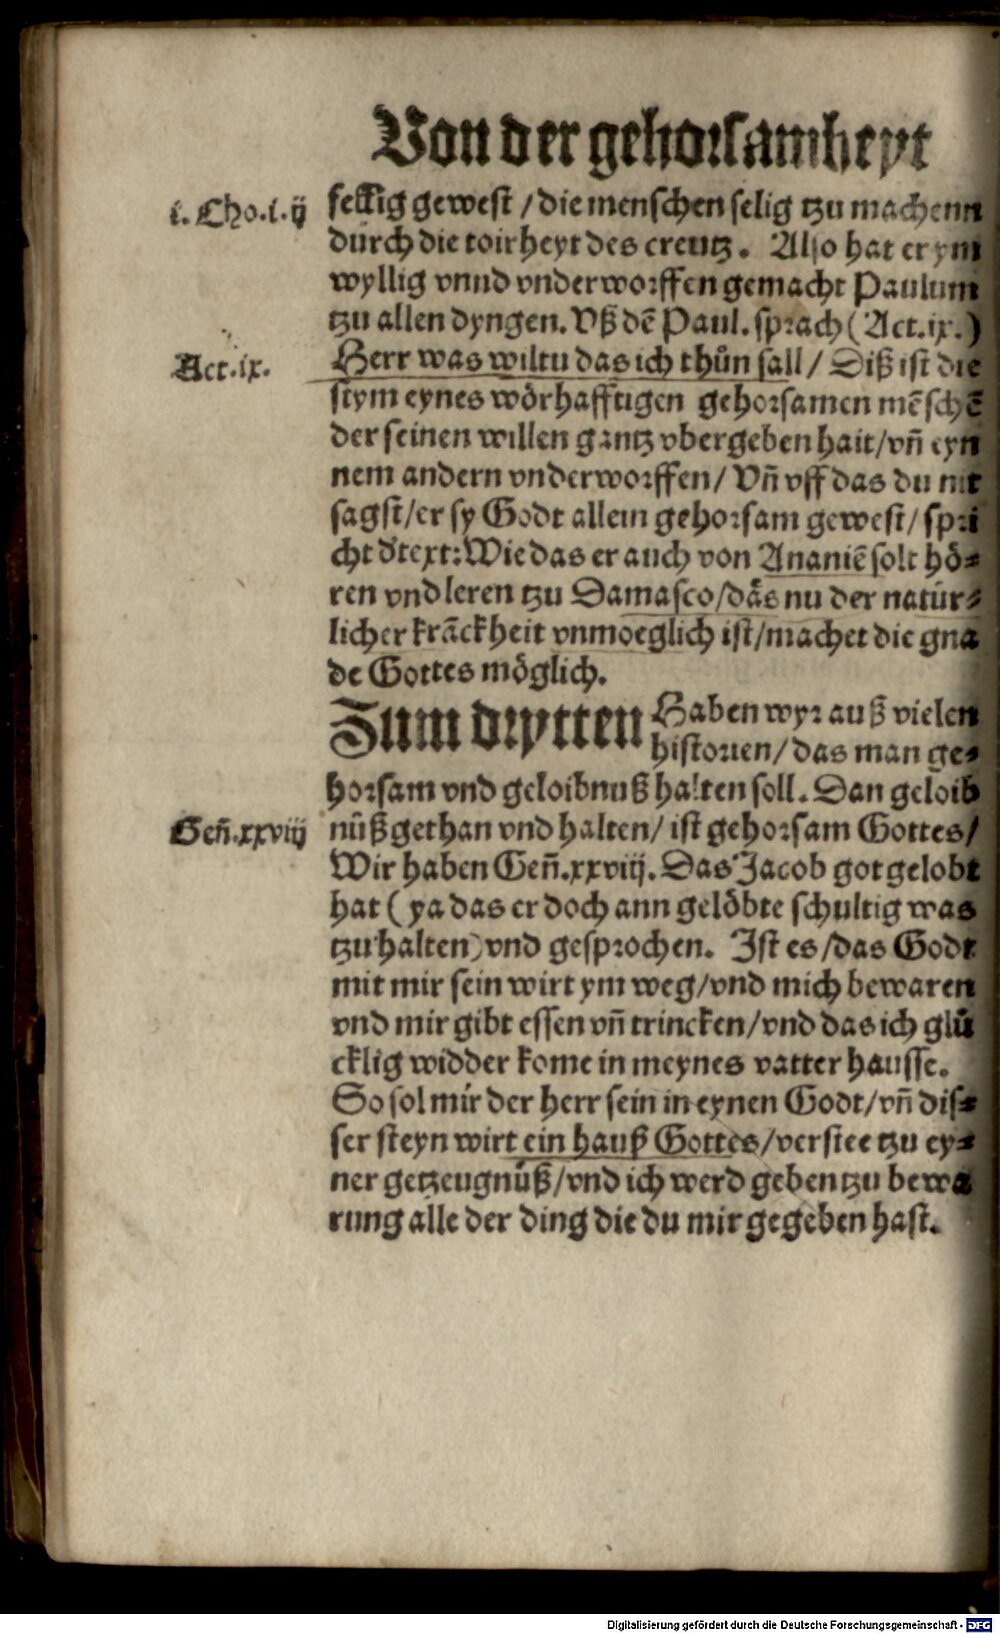 Von der gehorsamheyt
i. Cho.i.ij
fellig gewest / die menschen selig tzu machenn
durch die toirheyt des creutz. Also hat er ym
wyllig vnnd vnderworffen gemacht Paulum
tzu allen dyngen. Vß dē Paul. sprach (Act.ix.)
Act.ix.
Herr was wiltu das ich thůn sall / Diß ist die
stym eynes wörhafftigen gehorsamen mēschē
der seinen willen gantz vbergeben hait/vñ eyn
nem andern vnderworffen/ Vñ vff das du nit
sagst/er sy Godt allein gehorsam gewest/ spri
cht d'text: Wie das er auch von Ananiē solt hö⸗
ren vnd leren tzu Damasco/dås nu der natür⸗
licher krāckheit vnmoeglich ist/machet die gna
de Gottes möglich.
Zum drytten Haben wyr auß vielen
historien/ das man ge⸗
horsam vnd geloibnuß halten soll. Dan geloib
Geñ.xxviij
nüß gethan vnd halten/ ist gehorsam Gottes/
Wir haben Geñ.xxviij. Das Jacob got gelobt
hat ( ya das er doch ann gelöbte schultig was
tzu halten) vnd gesprochen. Ist es /das Godt
mit mir sein wirt ym weg/vnd mich bewaren
vnd mir gibt essen vñ trincken/vnd das ich glů
cklig widder kome in meynes vatter hausse.
So sol mir der herr sein in eynen Godt/vñ dis⸗
ser steyn wirt ein hauß Gottes/verstee tzu ey⸗
ner getzeugnüß/vnd ich werd geben tzu bewa
rung alle der ding die du mir gegeben hast.
Digitalisierung gefördert durch die Deutsche Forschungsgemeinschaft - DFG